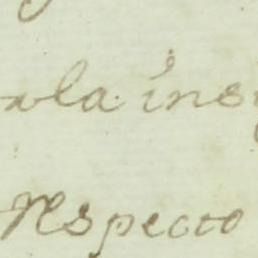 ola ins
respecto